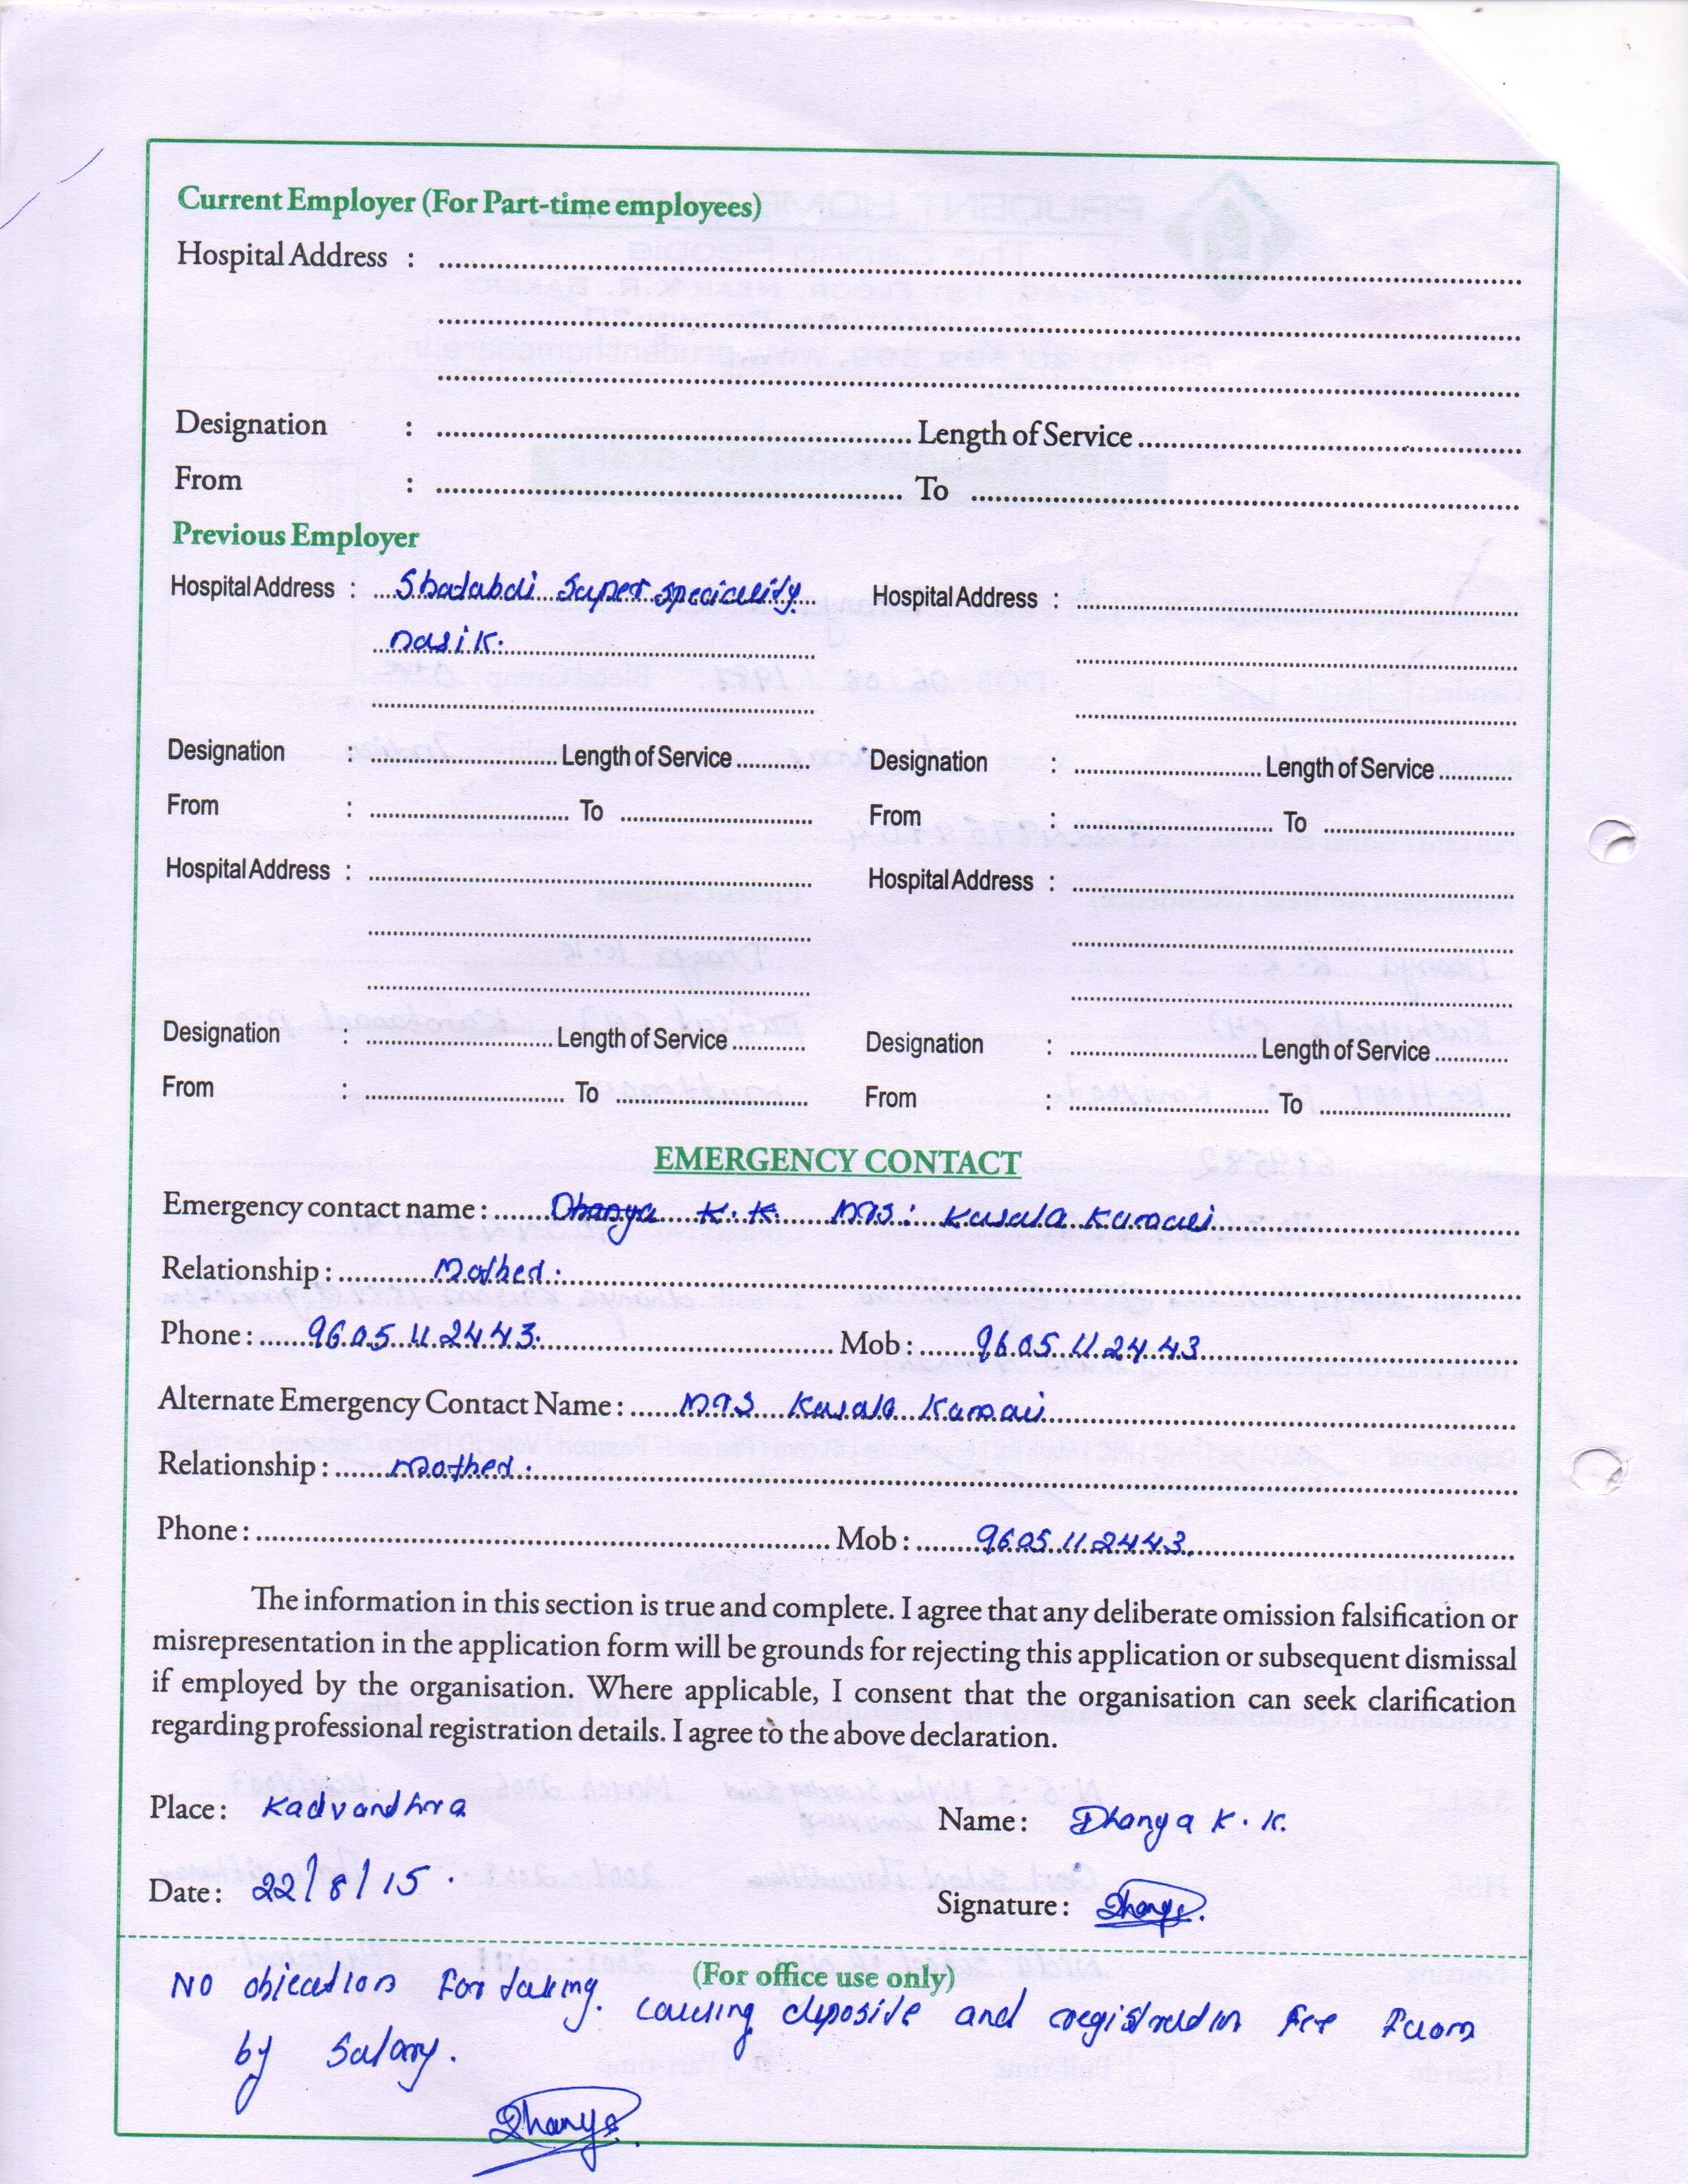 Current Employer (For Part-time employees)
Hospital Address :
Designation : Length of Service
From : To
Previous Employer
Hospital Address : Shatabdi Super speciality Hospital Address :
nasik.
Designation : Length of Service Designation : Length of Service
From : To From : To
Hospital Address : Hospital Address :
Designation : Length of Service Designation : Length of Service
From : To From : To
EMERGENCY CONTACT
Emergency contact name : Dhanya K.K. mrs: Kusala Kumari
Relationship : Mother.
Phone : 9605112443. Mob : 9605112443
Alternate Emergency Contact Name : mrs Kusala Kumari
Relationship : mother.
Phone : Mob : 9605112443.
The information in this section is true and complete. I agree that any deliberate omission falsification or
misrepresentation in the application form will be grounds for rejecting this application or subsequent dismissal
if employed by the organisation. Where applicable, I consent that the organisation can seek clarification
regarding professional registration details. I agree to the above declaration.
Place : Kadvandhra Name : Dhanya K.K.
Date : 22/8/15. Signature : Dhanya.
(For office use only)
NO objection for taking. causing deposite and registration fee from
by Salary.
Dhanya